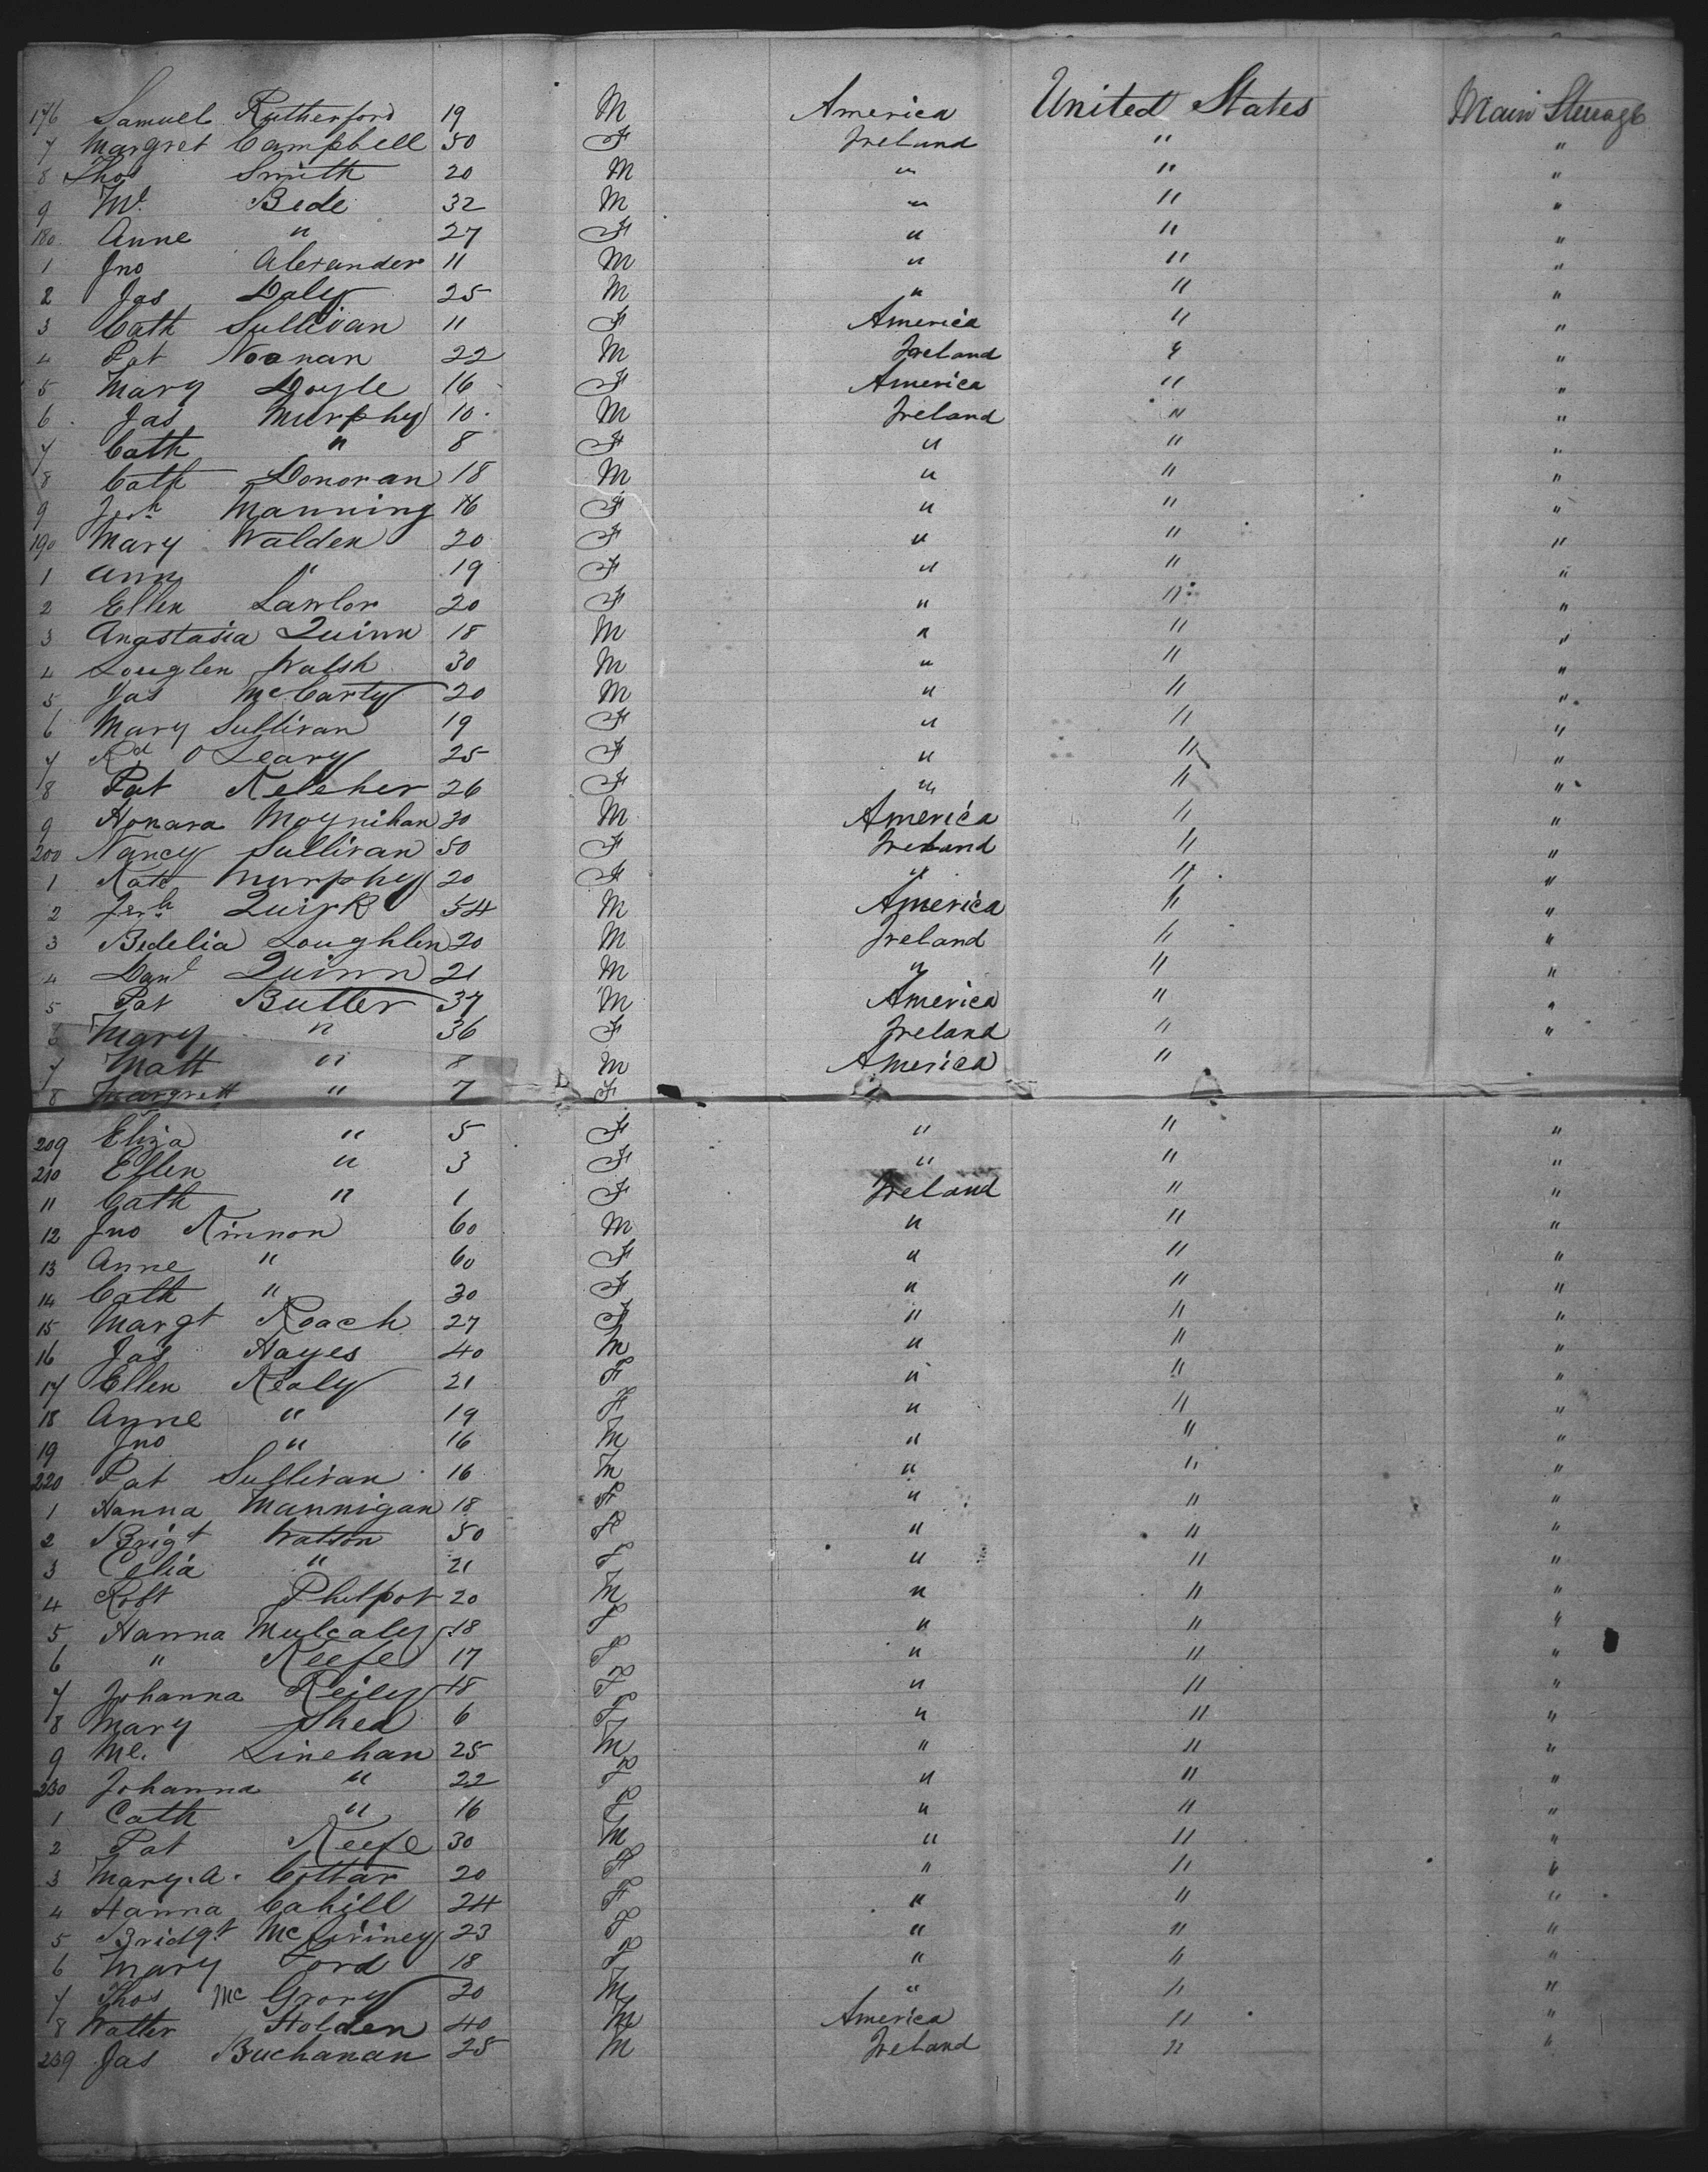 176 Samuel Rutherford 19 M America United States Main Sterage
7 Margret Campbell 50 F Ireland " "
8 Thos Smith 20 M " " "
9 Ml. Bede 32 M " " "
180 Anne " 27 F " " "
1 Jno Alexander 11 M " " "
2 Jas Daly 25 M " " "
3 Cath Sullivan 11 F America " "
4 Pat Noonan 22 M Ireland " "
5 Mary Doyle 16 F America " "
6 Jas Murphy 10 M Ireland " "
7 Cath " 8 F " " "
8 Cath Donovan 18 M " " "
9 Jerh Manning 16 F " " "
190 Mary Walden 20 F " " "
1 Ann " 19 F " " "
2 Ellen Lawlor 20 F " " "
3 Anastasia Quinn 18 M " " "
4 Louglen Walsh 30 M " " "
5 Jas McCarty 20 M " " "
6 Mary Sullivan 19 F " " "
7 Rd O Leary 25 F " " "
8 Pat Keleher 26 F " " "
9 Honara Moynihan 30 M America " "
200 Nancy Sullivan 50 F Ireland " "
1 Kate Murphy 20 F " " "
2 Jerh Quirk 54 M America " "
3 Bedelia Loughlen 20 M Ireland " "
4 Danl Quinn 21 M " " "
5 Pat Butler 37 M America " "
6 Mary " 36 F Ireland " "
7 Matt " 8 M America "
8 Margrett " 7 F
209 Eliza " 5 F " " "
210 Ellen " 3 F " " "
11 Cath " 1 F Ireland " "
12 Jno Kinnon 60 M " " "
13 Anne " 60 F " " "
14 Cath " 30 F " " "
15 Margt Roach 27 F " " "
16 Jas Hayes 40 M " " "
17 Ellen Kealy 21 F " " "
18 Anne " 19 F " " "
19 Jno " 16 M " " "
220 Pat Sullivan 16 M " " "
1 Hanna Mannigan 18 F " " "
2 Brigt Watson 50 F " " "
3 Celia " 21 F " " "
4 Robt Philpot 20 M " " "
5 Hanna Mulcaly 18 F " " "
6 " Keefe 17 F " " "
7 Johanna Reily 18 F " " "
8 Mary Shea 6 F " " "
9 Ml. Linehan 25 M " " "
230 Johanna " 22 F " " "
1 Cath " 16 F " " "
2 Pat Keefe 30 M " " "
3 Mary. A. Cottar 20 F " " "
4 Hanna Cahill 24 F " " "
5 Bridgt 23 F " " "
6 Mary Ford 18 F " " "
7 Thos Mc Grory 20 M " " "
8 Walter Holden 40 M America " "
239 Jas Buchanan 25 M Ireland " "